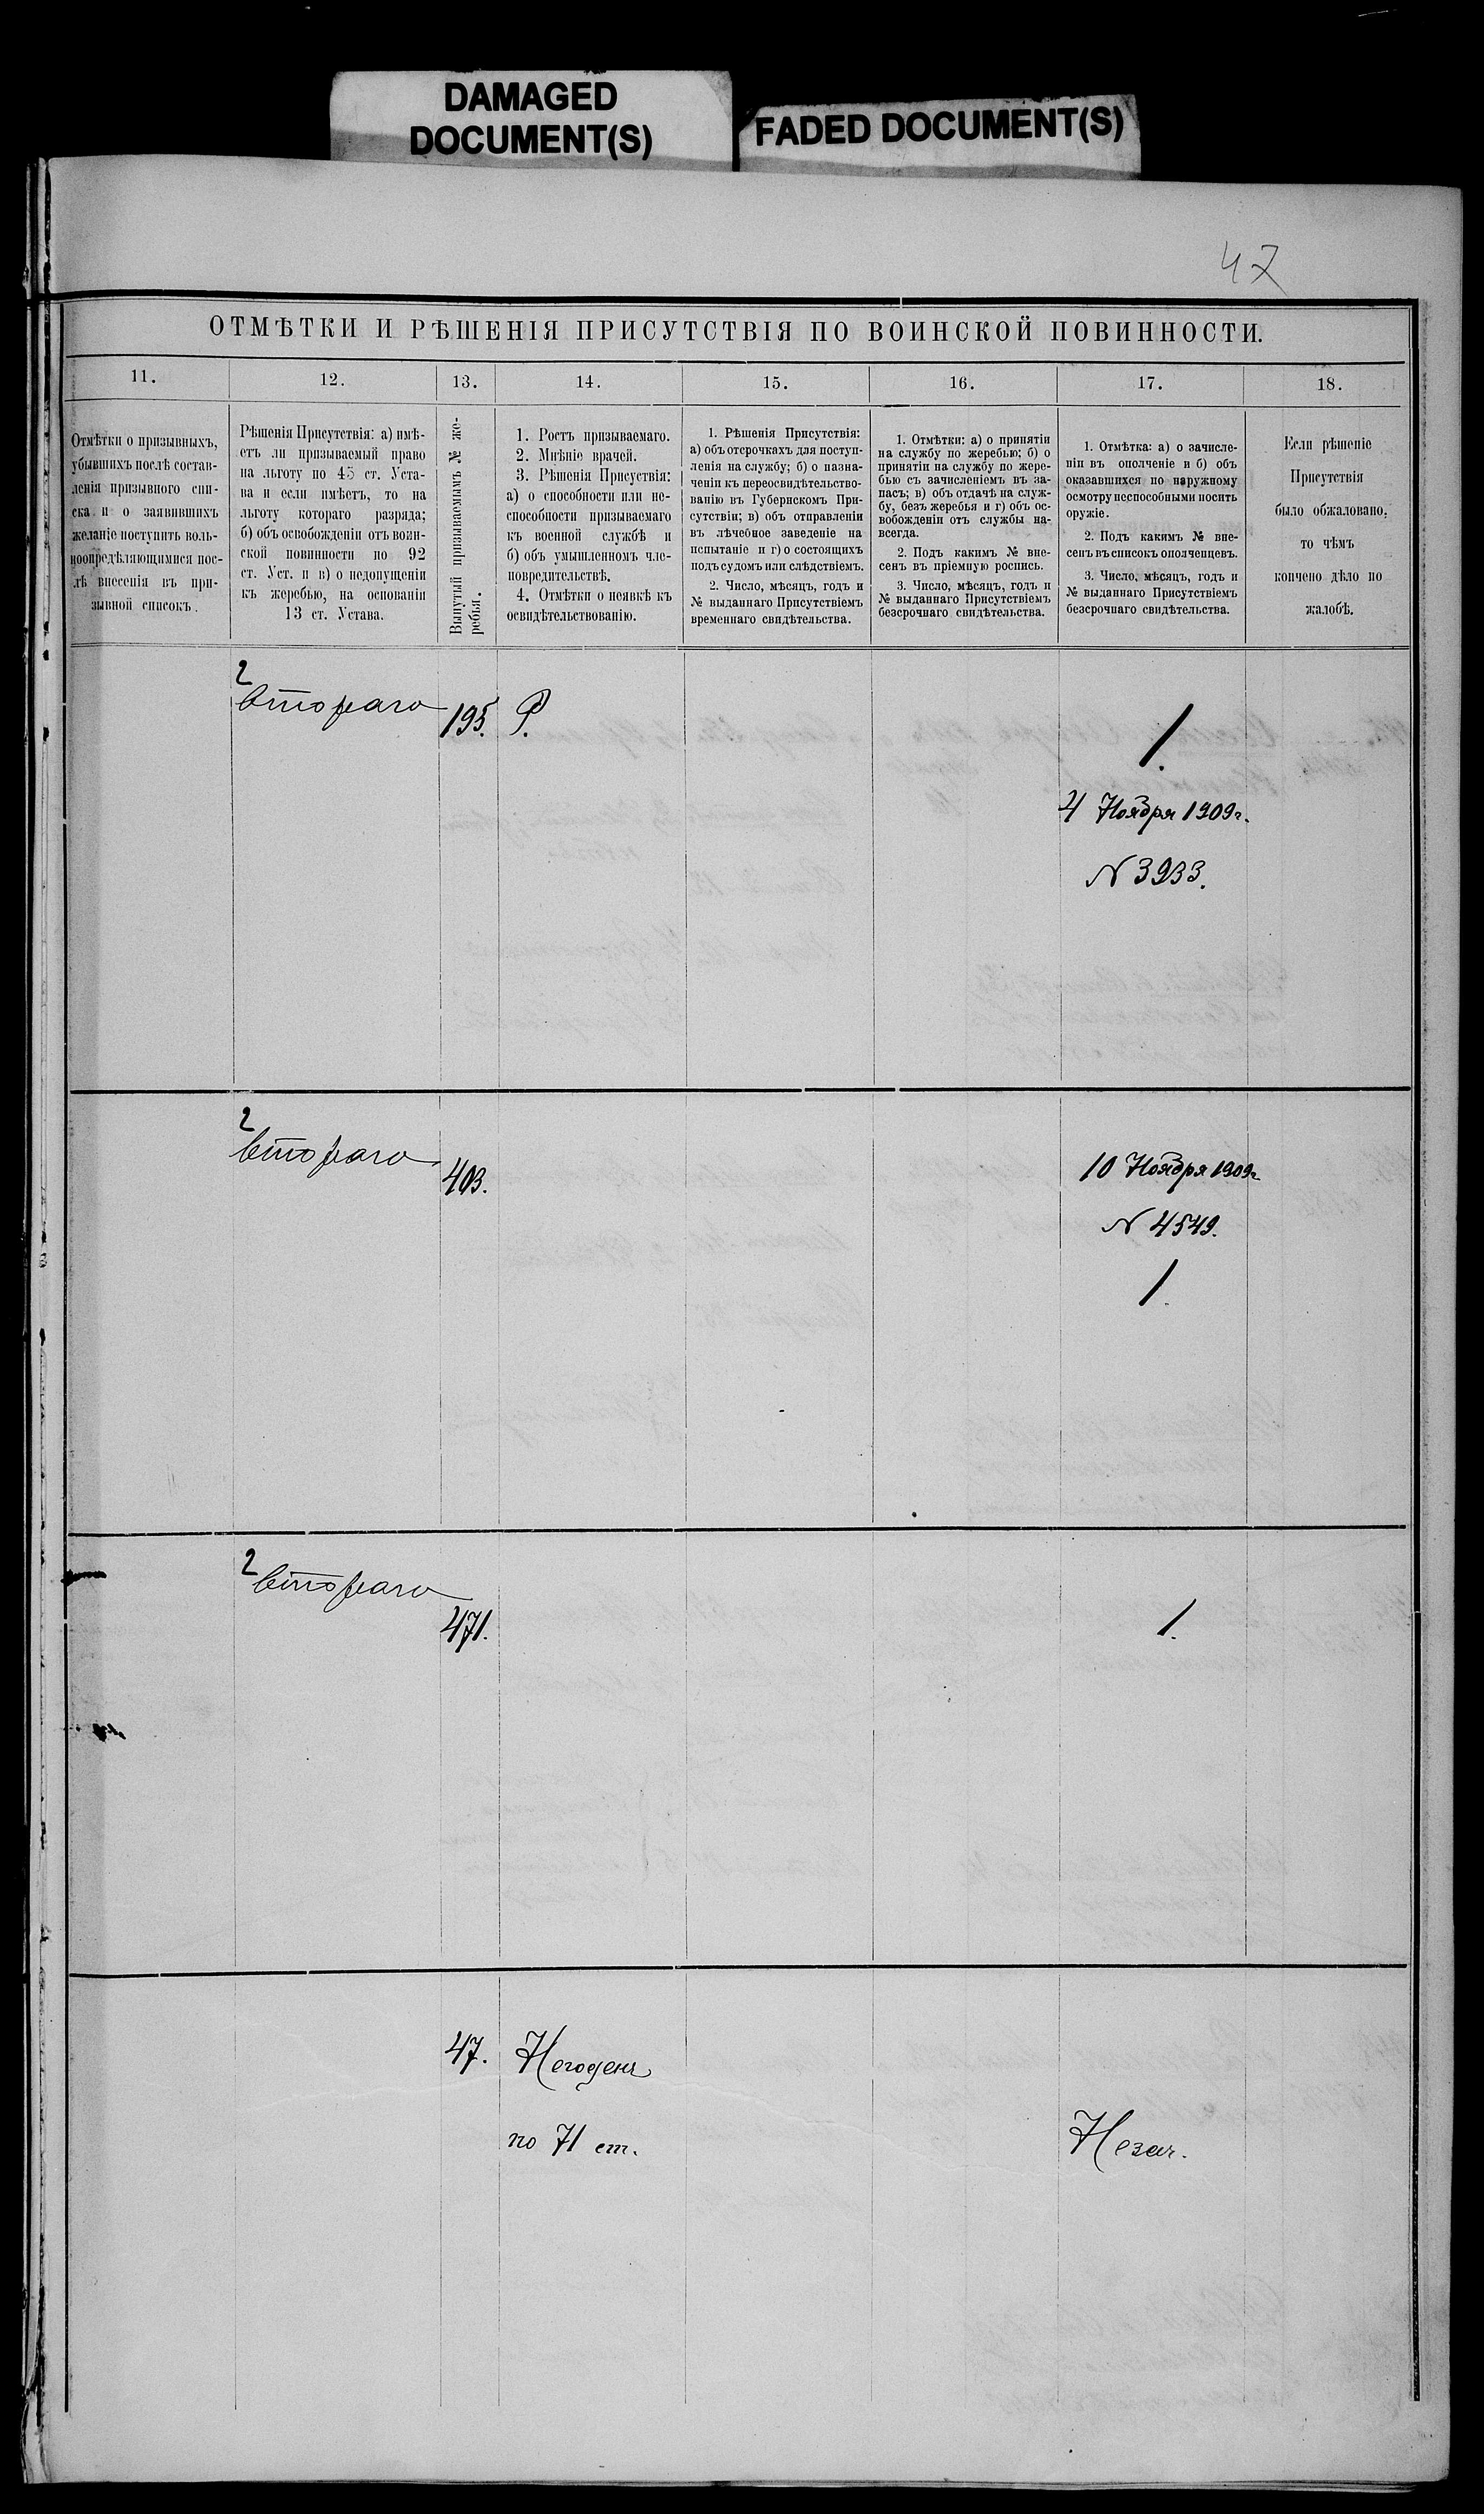 DAMAGED
DOCUMENT(S)
FADED DOCUMENT(S)
47
ОТМѢТКИ И РѢШЕНІЯ ПРИСУТСТВІЯ ПО ВОИНСКОЙ ПОВИННОСТИ.
11.
12.
13.
14.
15.
16.
17.
18.
Отмѣтки о призывныхъ,
убывшихъ послѣ состав-
ленія призывного спи-
ска и о заявившихъ
желаніе поступить воль-
ноопредѣляющимися пос-
лѣ внесенія въ при-
зывной списокъ.
Рѣшенія Присутствія: а) имѣ-
етъ ли призываемый право
на льготу по 45 ст. Уста-
ва и если имѣетъ, то на
льготу котораго разряда;
б) объ освобожденіи отъ воин-
ской повинности по 92
ст. Уст. и в) о недопущеніи
къ жеребью, на основаніи
13 ст. Устава.
Вынутый призываемымъ № же-
ребья.
1. Ростъ призываемаго.
2. Мнѣніе врачей.
3. Рѣшенія Присуствія:
а) о способности или не-
способности призываемаго
къ военной службѣ и
б) объ умышленномъ чле-
новредительствѣ.
4. Отмѣтки о неявкѣ къ
освидѣтельствованію.
1. Рѣшенія Присутствія:
а) объ отсрочкахъ для поступ-
ленія на службу; б) о назна-
ченіи къ переосвидѣтельство-
ванію въ Губернскомъ При-
сутствіи; в) объ отправленіи
въ лѣчебное заведеніе на
испытаніе и г) о состоящихъ
подъ судомъ или слѣдствіемъ.
2. Число, мѣсяцъ, годъ и
№ выданнаго Присутствіемъ
временнаго свидѣтельства.
1. Отмѣтки: а) о принятіи
на службу по жеребью; б) о
принятіи на службу по жере-
бью съ зачисленіемъ въ за-
пасъ; в) объ отдачѣ на служ-
бу, безъ жеребья и г) объ ос-
вобожденіи отъ службы на-
всегда.
2. Подъ какимъ № вне-
сенъ въ пріемную роспись.
3. Число, мѣсяцъ, годъ и
№ выданнаго Присутствіемъ
безсрочнаго свидѣтельства.
1. Отмѣтка: а) о зачисле-
ніи въ ополченіе и б) объ
оказавшихся по наружному
осмотру неспособными носить
оружіе.
2. Подъ какимъ № вне-
сенъ въ списокъ ополченцевъ.
3. Число, мѣсяцъ, годъ и
№ выданнаго Присутствіемъ
безсрочнаго свидѣтельства.
Если рѣшеніе
Присутствія
было обжаловано,
то чѣмъ
кончено дѣло по
жалобѣ.
2
втораго
195.
Р.
1.
4 Ноября 1909г.
N 3933.
2
втораго
403.
10 Ноября 1909г
N 4549.
1.
2
втораго
471.
1.
47.
Негоденъ
по 71 ст.
Незач.